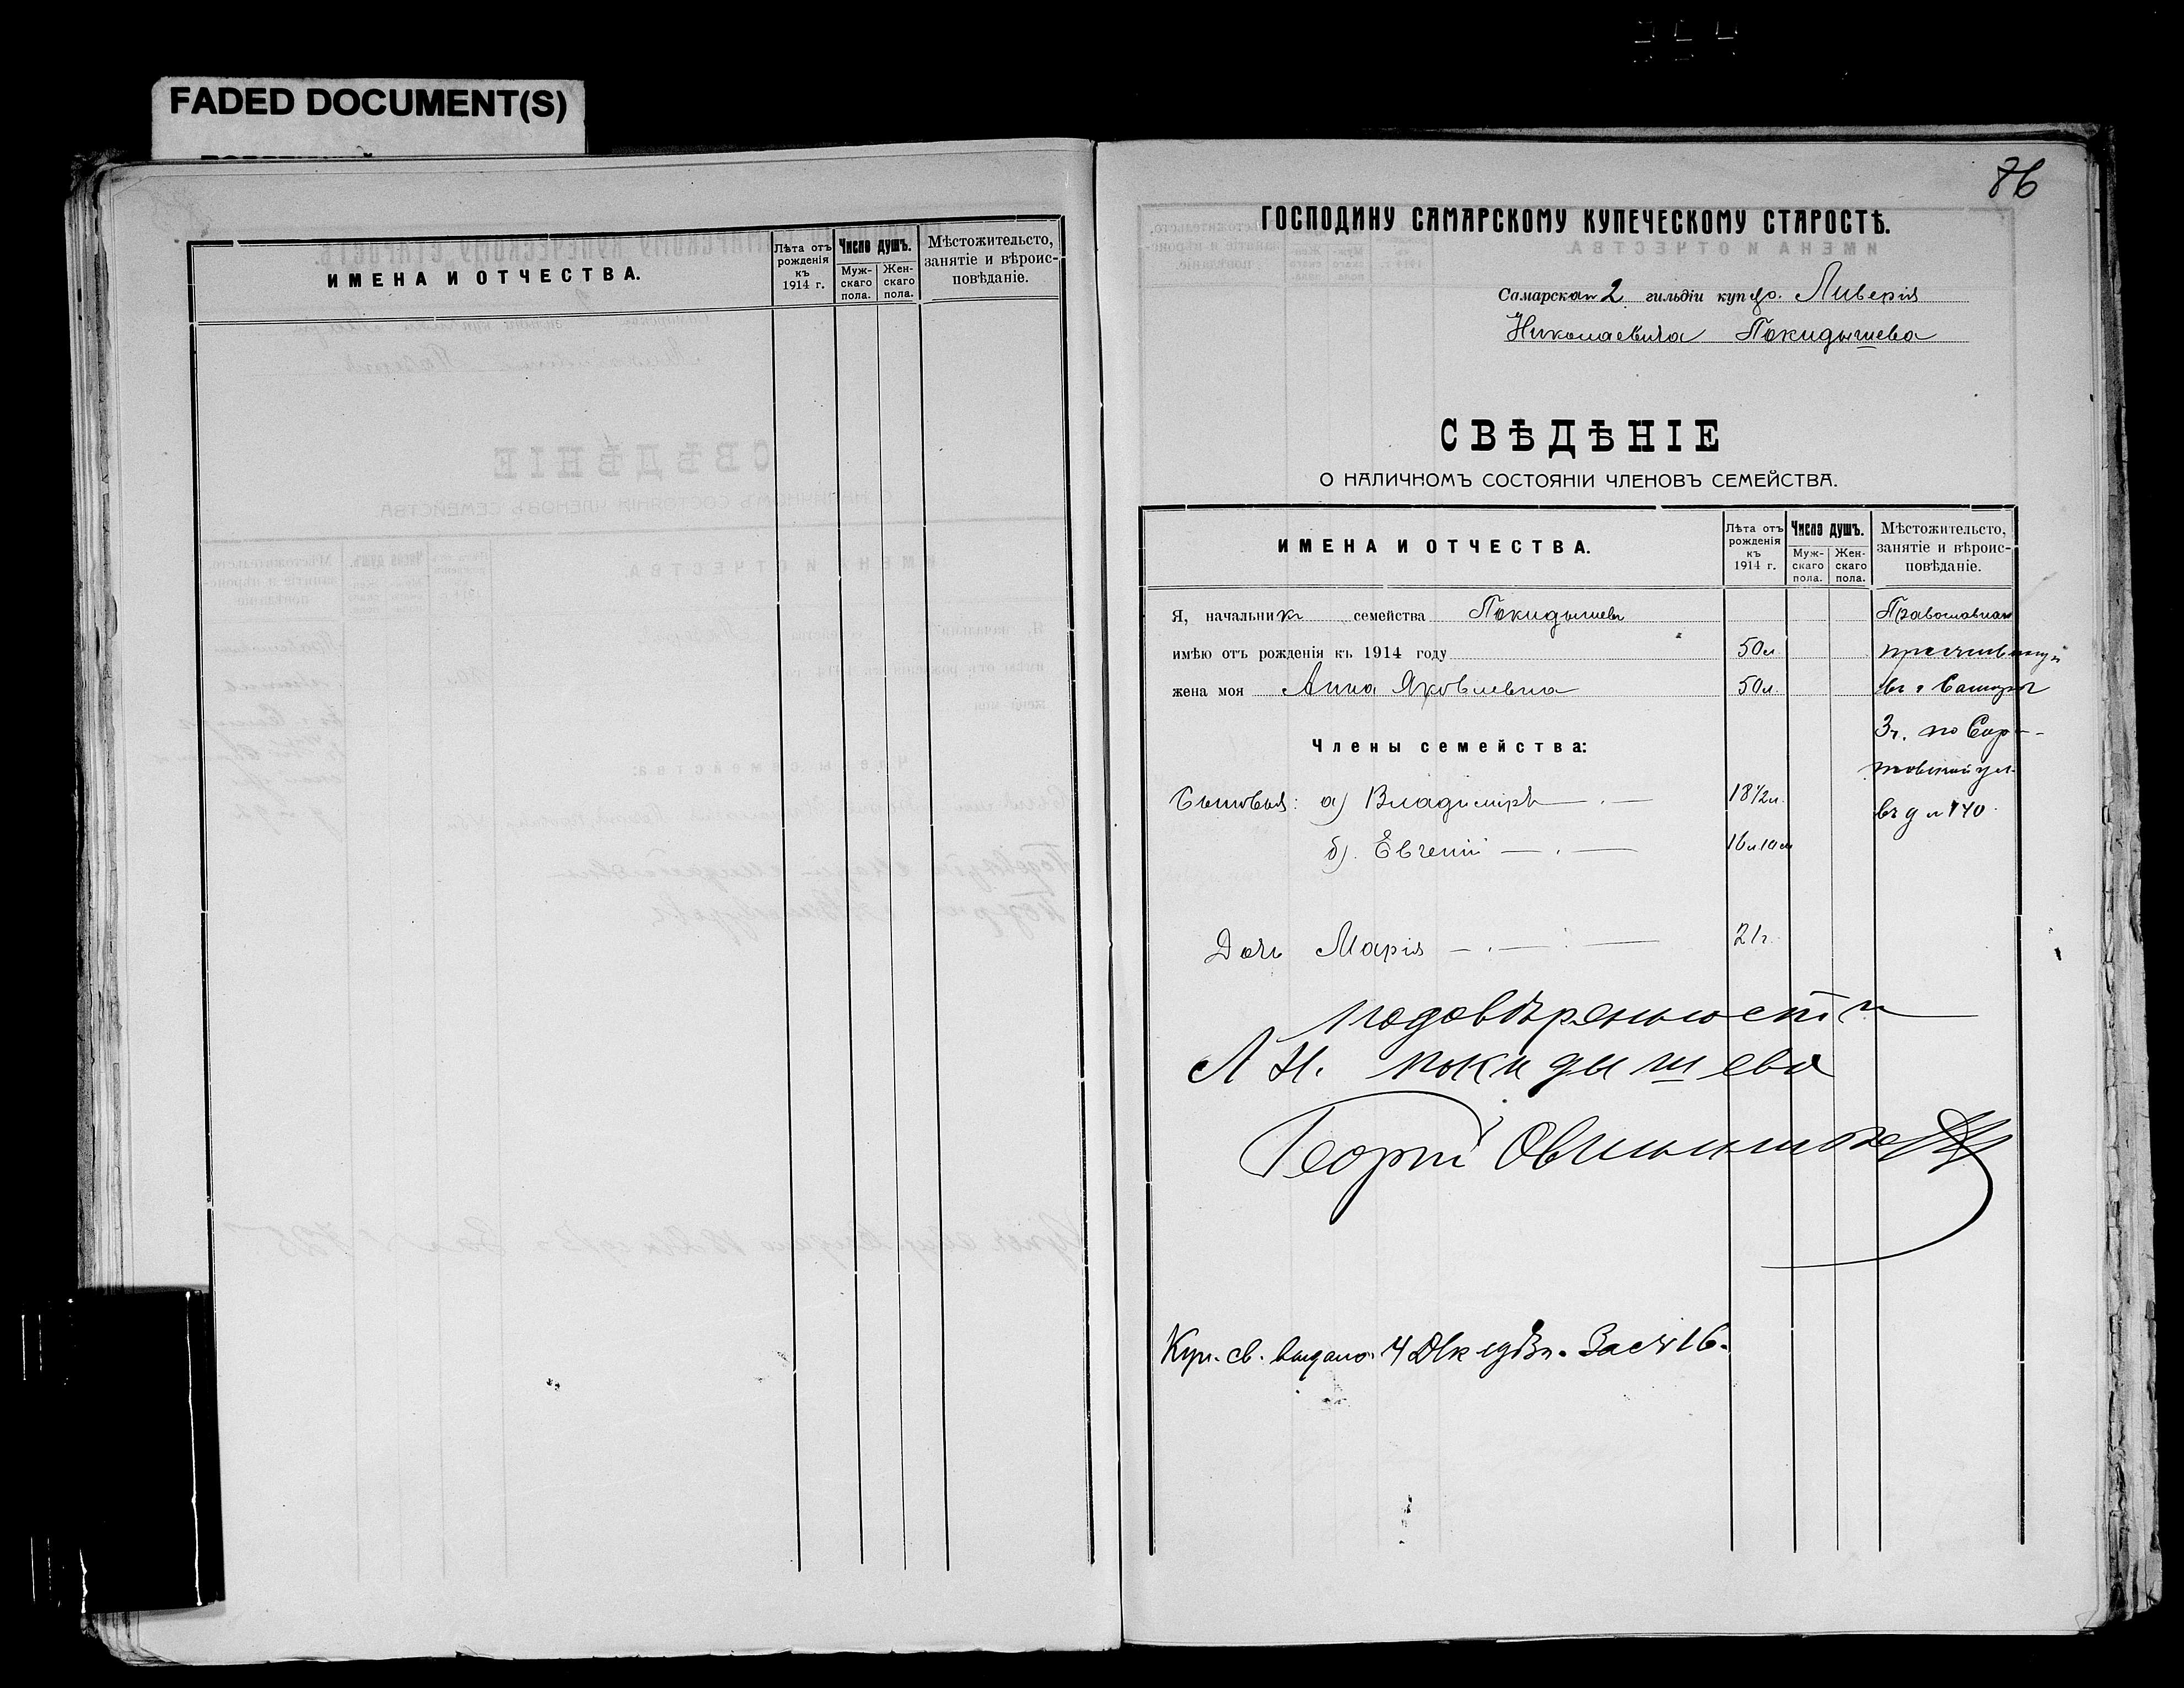 FADED DOCUMENT(S)
ИМЕНА И ОТЧЕСТВА.
Лѣта отъ рожденія къ 1914 г.
Число душъ.
Муж-скаго пола.
Жен-скаго пола.
Мѣстожительсто, занятіе и вѣроис-повѣданіе.
86
ГОСПОДИНУ САМАРСКОМУ КУПЕЧЕСКОМУ СТАРОСТѢ.
Самарскаго 2 гильдіи купца Ливерія
Николаевича Покидышева
СВѢДѢНІЕ
О НАЛИЧНОМЪ СОСТОЯНІИ ЧЛЕНОВЪ СЕМЕЙСТВА.
ИМЕНА И ОТЧЕСТВА.
Лѣта отъ рожденія къ 1914 г.
Число душъ.
Муж-скаго пола.
Жен-скаго пола.
Мѣстожительсто, занятіе и вѣроис-повѣданіе.
Я, начальникъ семейства Покидышевъ
имѣю отъ рожденія къ 1914 году 50 л.
жена моя Анна Яковлевна 50 л. въ г Самарѣ
3 ч. по Сара-
товской ул.
Члены семейства:
Сыновья: а) Владиміръ — . — 18 1/2 л. въ д № 140
б). Евгеній — . — 16 л. 10 м
Дочь Марія — . — . — 21 г.
по довѣренности
Л Н. Покидышева
Георгій
Куп. св. выдано 4 Дек 1913 г. За № 16.